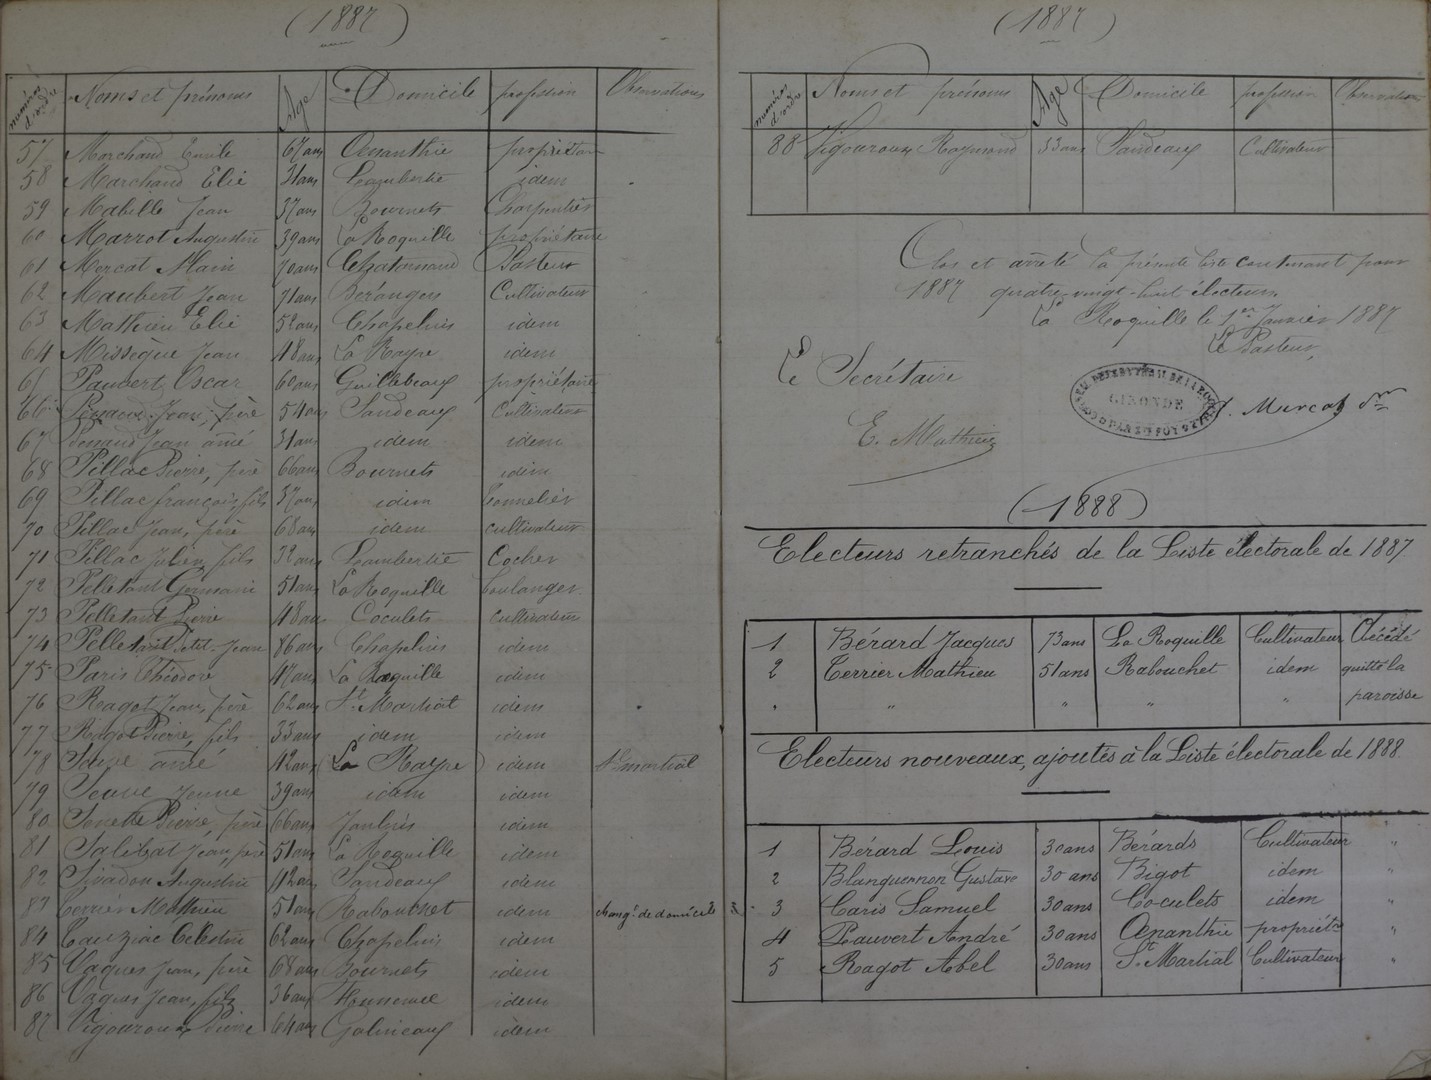 (1887)
numéros d'ordre Noms et prénoms Age Domicile profession Observations
57 Marchand Emile 67 ans Oenanthie propriétaire
58 Marchand Elie 31 ans Lambertie idem
59 Mabille Jean 37 ans Bournets Charpentier
60 Marrot Augustin 39 ans La Roquille propriétaire
61 Mercat Alain 70 ans Pasteur
62 Maubert Jean 71 ans Bérangers Cultivateur
63 Mathieu Elie 52 ans Chapelins idem
64 Jean 48 ans La Rayre idem
65 Pauvert Oscar 60 ans Guillebeaux propriétaire
66 Jean, père 54 ans Sandeaux Cultivateur
67 Jean ainé 31 ans idem idem
68 Pillac Pierre, père 66 ans Bournets idem
69 Pillac françois, fils 37 ans idem tonnelier
70 Pillac Jean, père 68 ans idem cultivateur
71 Pillac Julien, fils 32 ans Lambertie Cocher
72 Pelletant Germain 51 ans La Roquille boulanger
73 Pelletant Pierre 48 ans Coculets cultivateur
74 Pelletant Petit-Jean 86 ans Chapelins idem
75 Paris Théodore 47 ans La Roquille idem
76 Ragot Jean, père 62 ans St Martial idem
77 Ragot Pierre, fils 33 ans idem idem
78 ainé 42 ans La Rayre idem St martial
79 Jeune 39 ans idem idem
80 Pierre, père 66 ans idem
81 Jean, père 51 ans La Roquille idem
82 Sivadon Augustin 42 ans Sandeaux idem
83 Terrier Mathieu 51 ans Rabouchet idem changt de domicile
84 Tauziac Celestin 62 ans Chapelins idem
85 Vaques Jean, père 68 ans Bournets idem
86 Vaques Jean, fils 36 ans idem
87 Vigouroux Pierre 64 ans Galineaux idem
(1887)
numéros d'ordre Noms et prénoms Age Domicile profession Observations
88 Vigouroux Raymond 33 ans Sandeaux Cultivateur
Clos et arrêté la présente liste contenant pour
1887 quatre-vingt-huit électeurs.
La Roquille le 1er Janvier 1887
Le Pasteur,
Le Secrétaire
GIRONDE
Mercat
E. Mathieu
(1888)
Electeurs retranchés de la Liste électorale de 1887
1 Bérard Jacques 73 ans La Roquille Cultivateur Décédé
2 Terrier Mathieu 51 ans Rabouchet idem quitté la
" " " " paroisse
Electeurs nouveaux, ajoutés à la Liste électorale de 1888
1 Bérard Louis 30 ans Bérards Cultivateur "
2 Blanquernon Gustave 30 ans Bigot idem "
3 Caris Samuel 30 ans Coculets idem "
4 Pauvert André 30 ans Oenanthie propriétre "
5 Ragot Abel 30 ans St Martial Cultivateur "